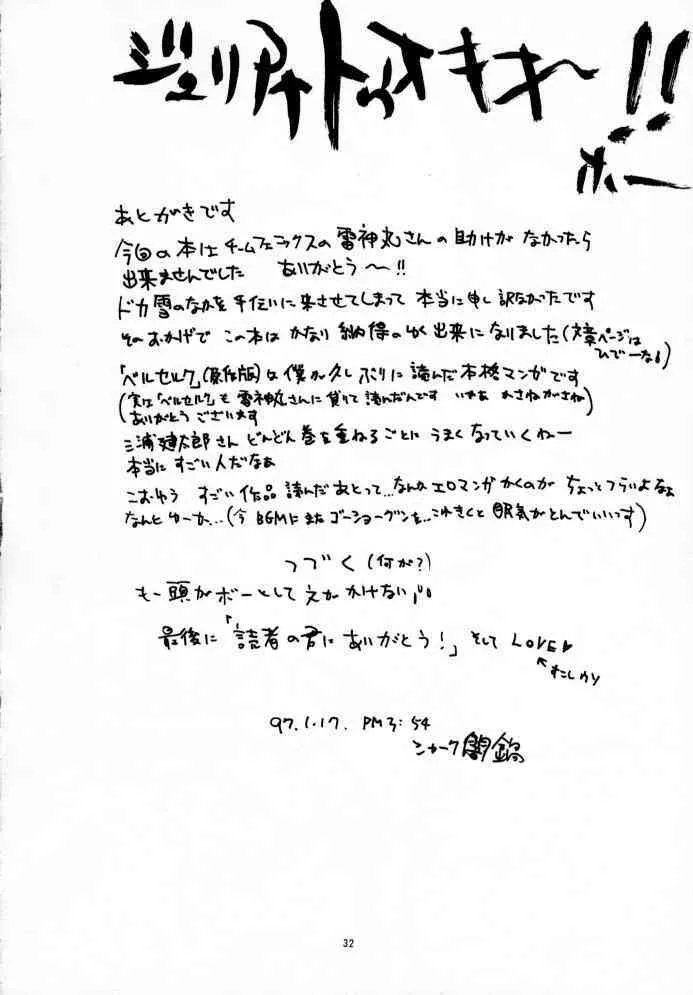 ジュリアナトゥオキキ〜!!
ホー
あとがきです
今回の本はチームフェニックスの雷神丸さんの助けがなかったら
出来ませんでした ありがとう〜!!
ドカ雪のなかを手伝いに来させてしまって 本当に申し訳なかったです
そのおかげで この本は かなり納得のゆく出来になりました(文章ページは
ひでーなぁ)
「ベルセルク」(原作版)は僕が久しぶりに読んだ本格マンガです
(実は「ベルセルク」も雷神丸さんに貸りて読んだんです いやあ かさねがさね)
(ありがとうございます
三浦建太郎さん どんどん巻を重ねるごとに うまくなっていくねー
本当にすごい人だなぁ
こおゆう すごい作品読んだあとって…なんかエロマンガかくのが ちょっとつらいよなぁ
なんとゆーか…(今BGMにまたゴーショーグンを…これきくと眠気がとんでいいっす)
つづく(何が?)
もー頭がボーとして えが かけない
最後に「読者の君にありがとう!」そして LOVE♥
97.1.17. PM3:54
シャーク闇鍋
32